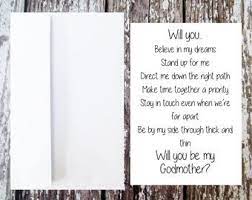 Will you..
Believe in my dreams
Stand up for me
Direct me down the right path
Make time together a priority
Stay in touch even when we're
far apart
Be by my side through thick and
thin
Will you be my
Godmother?